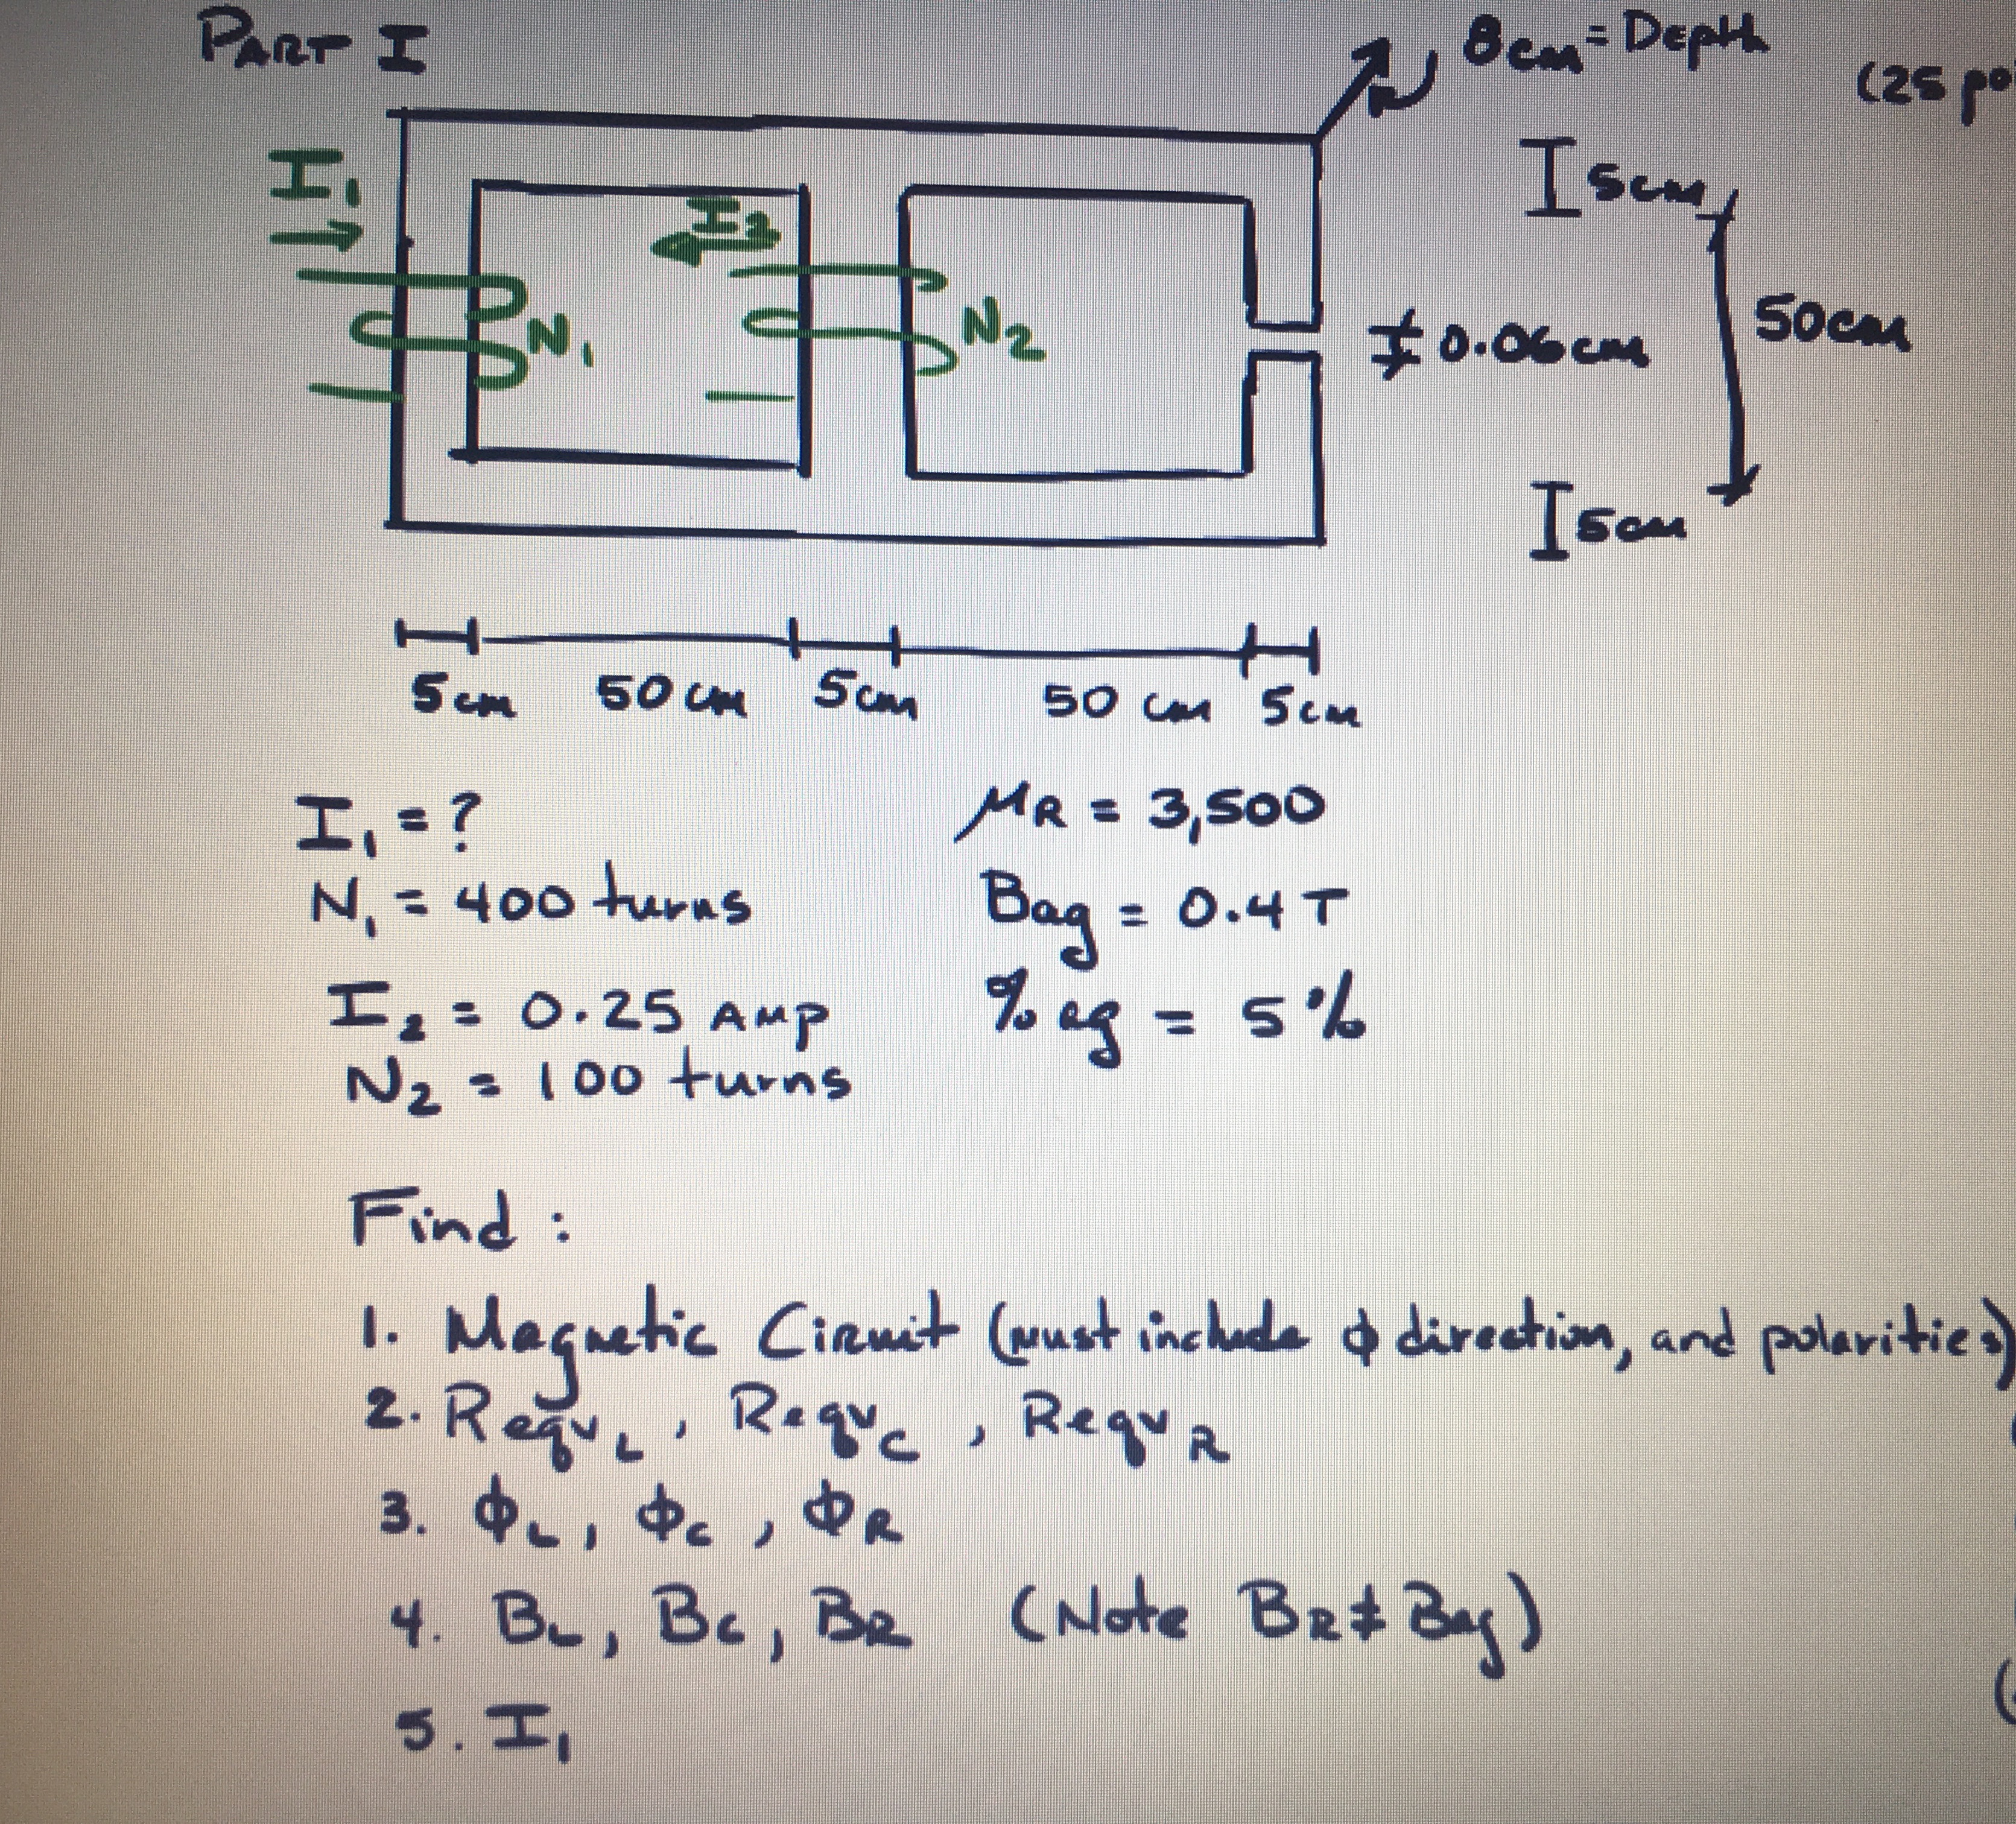 PART I
8cm = Depth
(25 po
I₁
I₂
5cm
N₁
N₂
0.06cm
50cm
5cm
5cm 50 cm 5cm 50 cm 5cm
I₁ = ?
μR = 3,500
N₁ = 400 turns
Bag = 0.4 T
I₂ = 0.25 AMP
% ag = 5%
N₂ = 100 turns
Find :
1. Magnetic Circuit (must include ϕ direction, and polarities)
2. ReqvL, ReqvC, ReqvR
3. ϕL, ϕC, ϕR
4. BL, BC, BR (Note BR ≠ Bag)
5. I₁